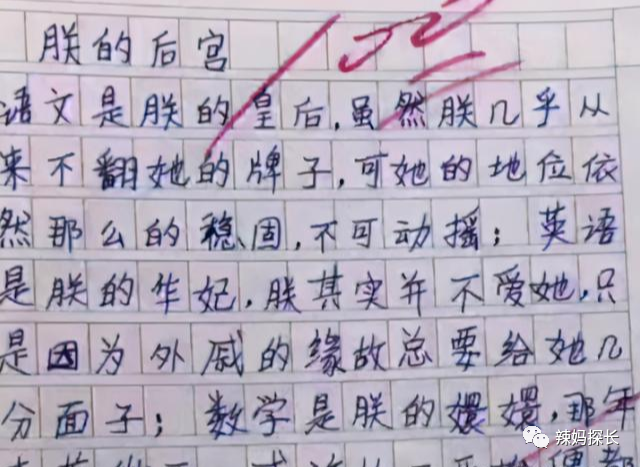 朕的后宫
100
语文是朕的皇后,虽然朕几乎从
来不翻她的牌子,可她的地位依
然那么的稳固,不可动摇;英语
是朕的华妃,朕其实并不爱她,只
是因为外戚的缘故总要给她几
分面子;数学是朕的嬛嬛,那年
辣妈探长